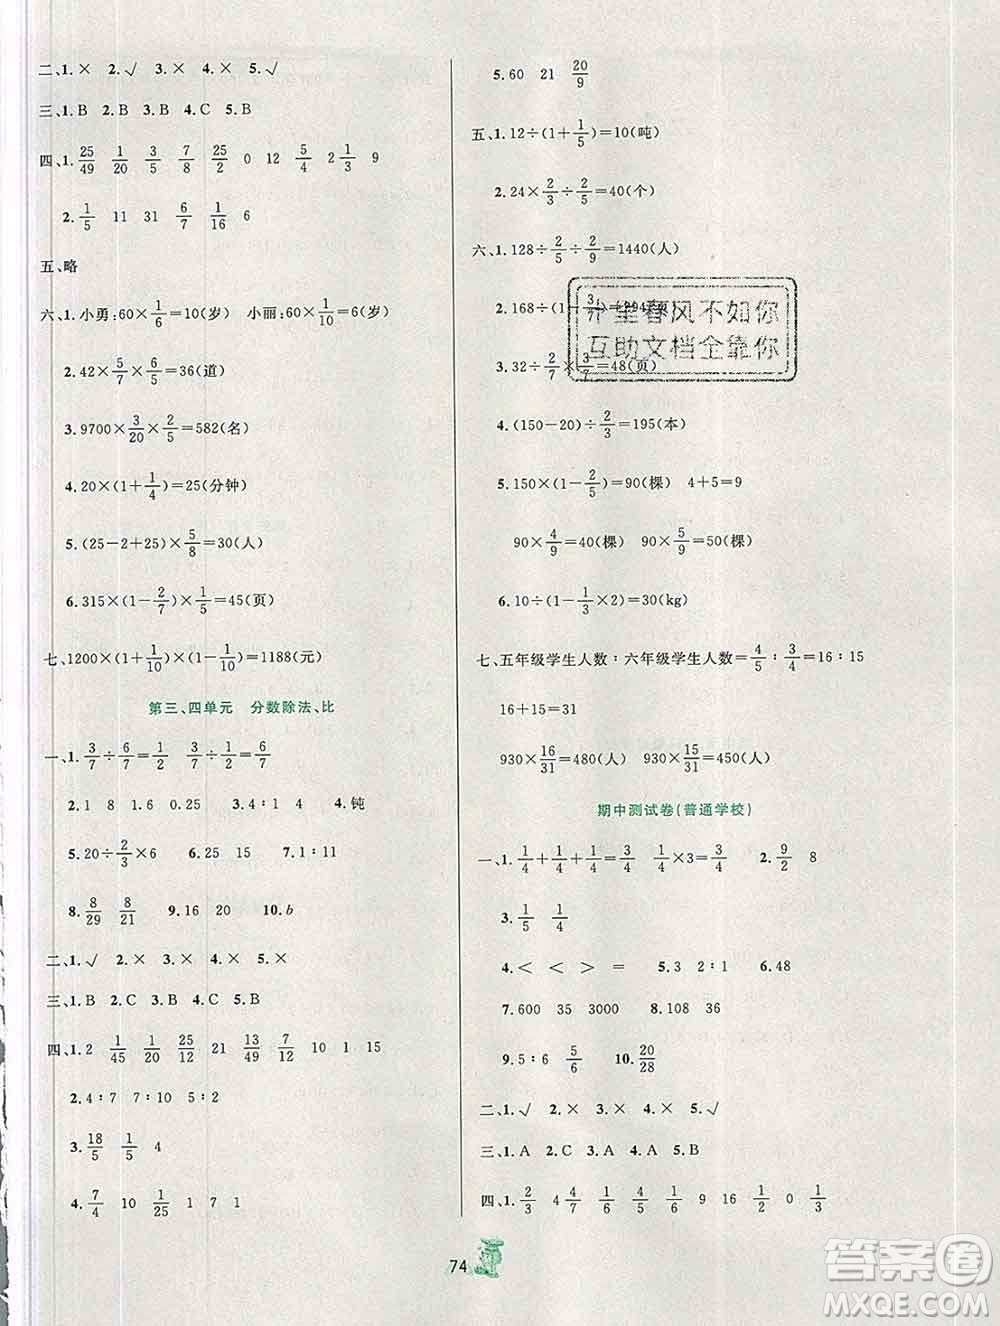 二、1.× 2.√ 3.× 4.× 5.√
三、1.B 2.B 3.B 4.C 5.B
四、1. 25/49 1/20 3/5 7/8 25/2 0 12 5/4 2 1/3 9
2. 1/5 11 31 6/7 1/16 6
五、略
六、1.小勇:60×1/6=10(岁) 小丽:60×1/10=6(岁)
2.42×5/7×6/5=36(道)
3.9700×3/20×2/5=582(名)
4.20×(1+1/4)=25(分钟)
5.(25-2+25)×5/8=30(人)
6.315×(1-2/7)×1/5=45(页)
七、1200×(1+1/10)×(1-1/10)=1188(元)
第三、四单元 分数除法、比
一、1. 3/7÷6/7=1/2 3/7÷1/2=6/7
2.1 8 1.6 0.25 3.4∶1 4 4.钝
5.20÷2/3×6 6.25 15 7.1∶11
8. 8/29 8/21 9.16 20 10.b
二、1.√ 2.× 3.× 4.× 5.×
三、1.B 2.C 3.B 4.C 5.B
四、1.2 1/45 1/20 25/12 21 13/49 7/12 10 1 15
2.4∶7 7∶10 5∶2
3. 18/5 1/5 4
4. 7/4 10 1/25 1 7 1
5.60 21 20/9
五、1.12÷(1+1/5)=10(吨)
2.24×2/3÷2/5=40(个)
六、1.128÷2/5÷2/9=1440(人)
2.168÷(1-3/7)=294(页)
3.32÷2/7×3/7=48(页)
4.(150-20)÷2/3=195(本)
5.150×(1-2/5)=90(棵) 4+5=9
90×4/9=40(棵) 90×5/9=50(棵)
6.10÷(1-1/3×2)=30(kg)
七、五年级学生人数∶六年级学生人数=4/5∶3/4=16∶15
16+15=31
930×16/31=480(人) 930×15/31=450(人)
期中测试卷(普通学校)
一、1. 1/4+1/4+1/4=3/4 1/4×3=3/4 2. 9/2 8
3. 1/5 1/4
4.< < > = 5.3 2∶1 6.48
7.600 35 3000 8.108 36
9.5∶6 5/6 10. 20/28
二、1.√ 2.× 3.× 4.× 5.√
三、1.A 2.C 3.A 4.A 5.B
四、1. 2/3 4 4/7 1/6 4/5 1/6 9 16 1/2 0 1/3
千里春风不如你
互助文档全靠你
74
答案圈
MXQE.COM